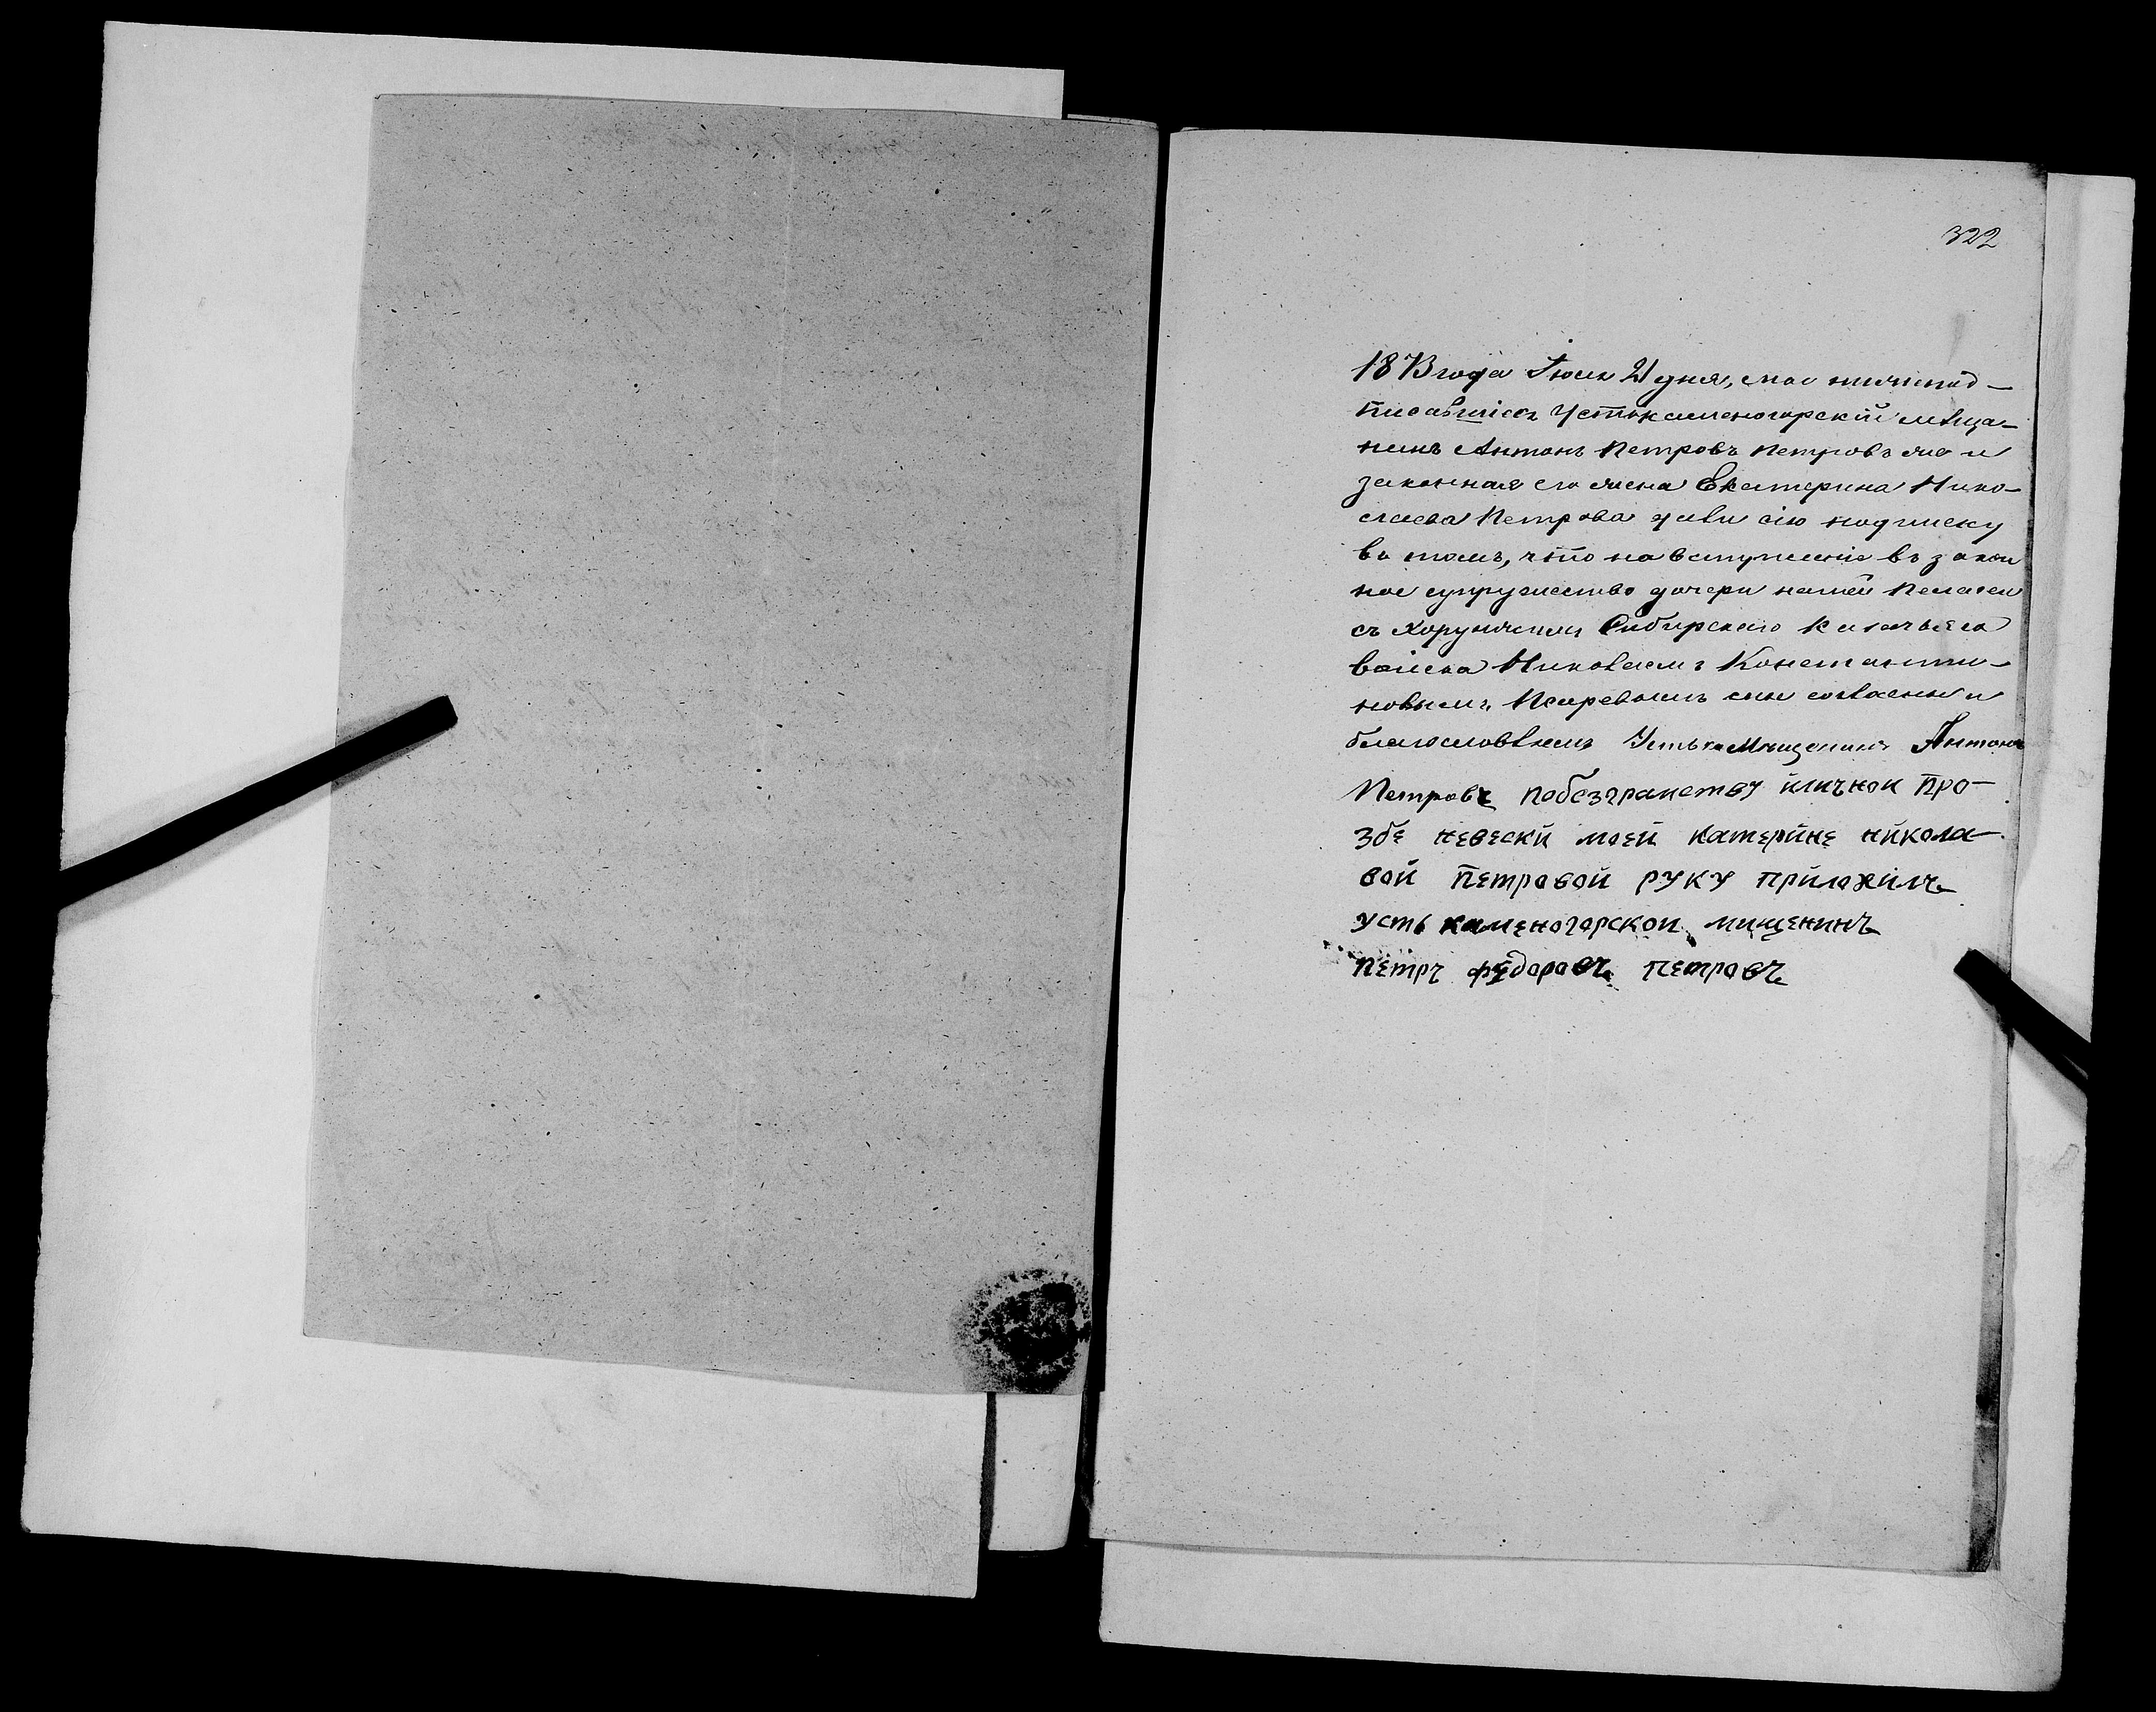 322
1873 года Іюля 21 дня, мы нижепод-
писавшіеся Устькаменогорскій мѣща-
нинъ Антонъ Петровъ Петровъ же и
законная его жена Екатерина Нико-
лаева Петрова дали сію подписку
въ томъ, что на вступленіе въ закон
ное супружество дочери нашей Пелагеи
съ Хорунжимъ Сибирскаго Казачьяго
войска Николаемъ Константи-
новымъ мы согласны и
благословляемъ Устька Мѣщанинъ Антонъ
Петровъ побезграмотву иличнои про-
збе невески моей катерйне нйкола
вой петровой руку приложилъ
усть каменогорскои мищенинъ
петръ фёдоровъ петровъ